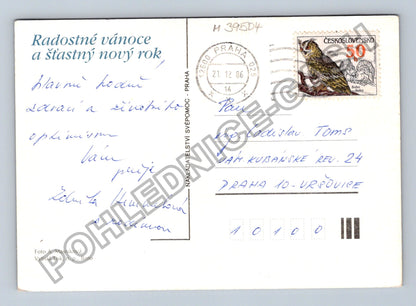 M 39504
Radostné vánoce
a šťastný nový rok
PRAHA
21.12.86
14
ČESKOSLOVENSKO
50
hlavně hodně
zdraví a životního
optimismu
Vám
přeje
s rodinou
NAKLADATELSTVÍ SVĚPOMOC - PRAHA
Pan
Ing Ladislav Toms
NÁM KUBÁNSKÉ REV. 24
PRAHA 10 - VRŠOVICE
1 0 1 0 0
POHLEDNICE-CZ.CZ